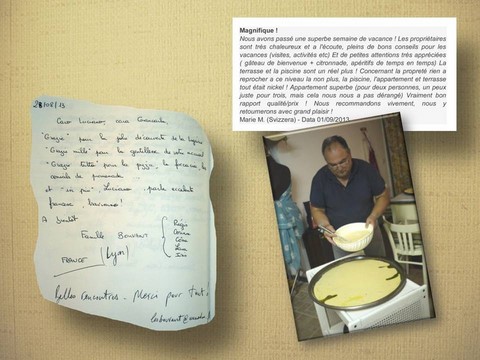 Magnifique !
Nous avons passé une superbe semaine de vacance ! Les propriétaires
sont très chaleureux et a l'écoute, pleins de bons conseils pour les
vacances (visites, activités etc) Et de petites attentions très appréciées
( gâteau de bienvenue + citronnade, apéritifs de temps en temps) La
terrasse et la piscine sont un réel plus ! Concernant la propreté rien a
reprocher a ce niveau la non plus, la piscine, l'appartement et terrasse
tout était nickel ! Appartement superbe (pour deux personnes, un peu
juste pour trois, mais cela nous nous a pas dérangé) Vraiment bon
rapport qualité/prix ! Nous recommandons vivement, nous y
retournerons avec grand plaisir !
Marie M. (Svizzera) - Data 01/09/2013
28/08/13
Caro Luciano, cara
"Grazie" pour la jolie découverte de la
"Grazie mille" pour la gentillesse de votre accueil
pour la pizza, la focaccia, les
conseils de promenade
et "in più", Luciano parle excellent
français, bravissimo !
A bientôt
Famille BOUVANT
FRANCE (Lyon)
Régis
Céline
Belles rencontres - Merci pour tout.